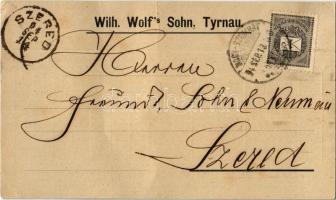 Wilh. Wolf's Sohn, Tyrnau.
SZERED
Herren
Freund, Sohn & Neumann
Szered